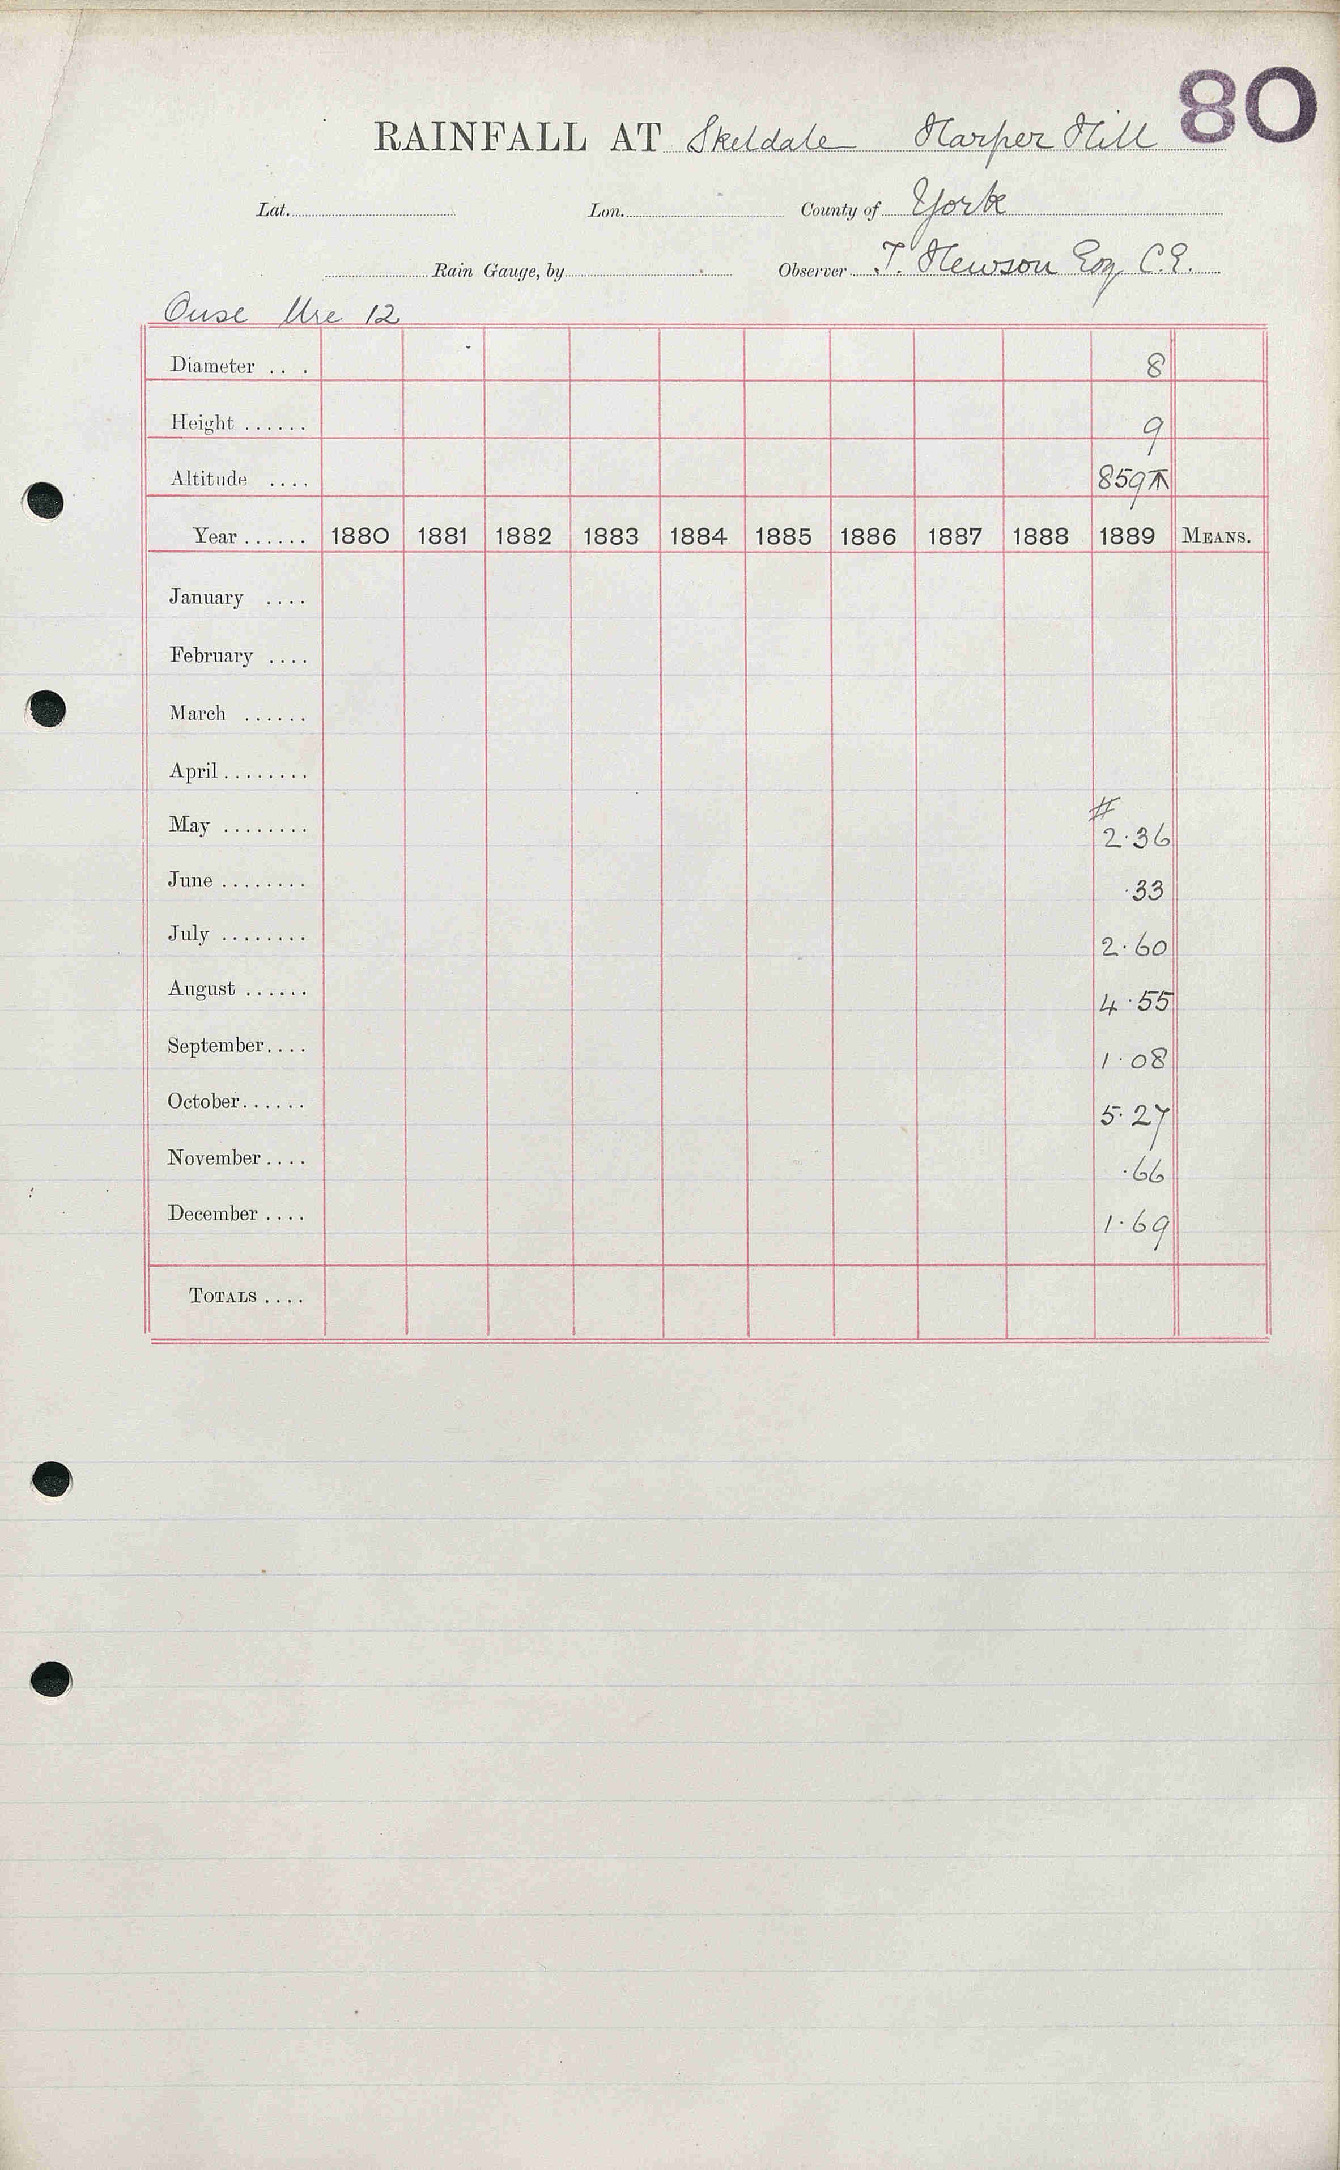 80
RAINFALL AT Skeldale Harper Hill
Lat. Lon. County of York
Rain Gauge, by Observer T. Hewson Esq C.E.
Ouse Ure 12
Diameter ... 8
Height ...... 9
Altitude .... 859
Year ...... 1880 1881 1882 1883 1884 1885 1886 1887 1888 1889 MEANS.
January ....
February ....
March ......
April ........
#
May ........ 2.36
June ........ .33
July ........ 2.60
August ...... 4.55
September .... 1.08
October ...... 5.27
November .... .66
December .... 1.69
TOTALS ....